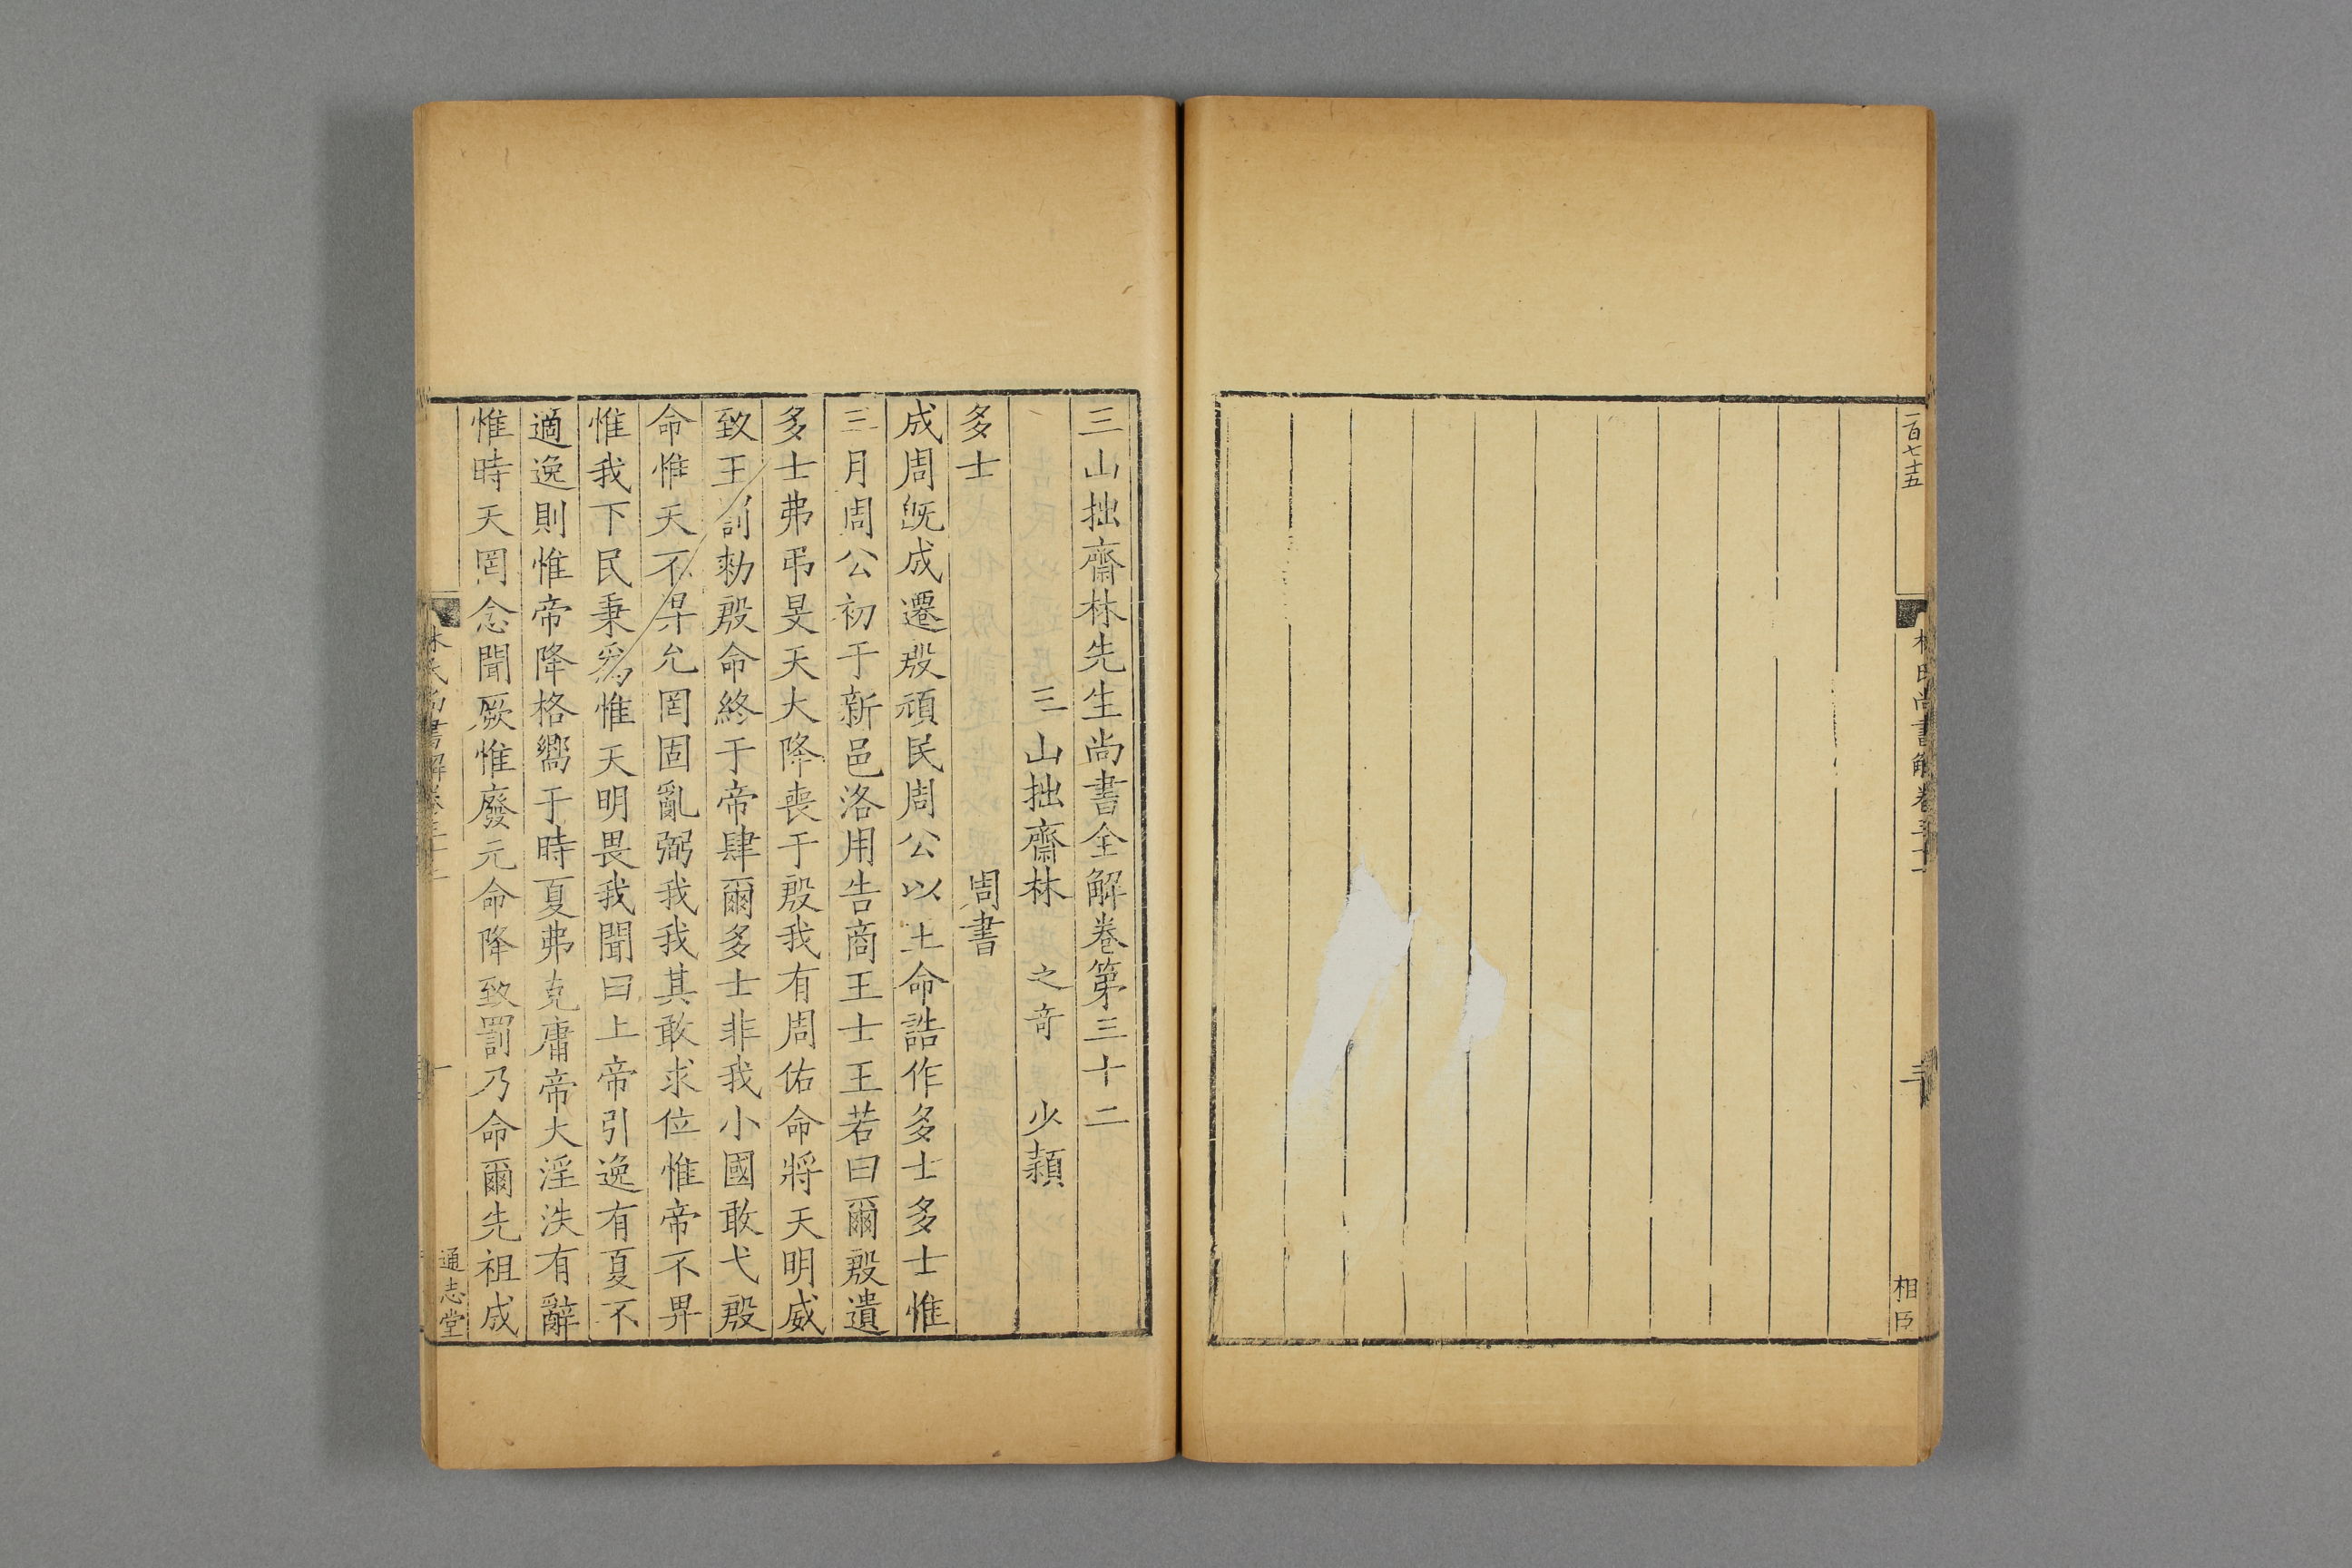 一百七十五
林氏尚書解卷三十一
三
相臣
三山拙齋林先生尚書全解卷第三十二
三山拙齋林 之奇 少頴
多士 周書
成周旣成遷殷頑民周公以王命誥作多士多士惟
三月周公初于新邑洛用告商王士王若曰爾殷遺
多士弗弔旻天大降喪于殷我有周佑命將天明威
致王罰勑殷命終于帝肆爾多士非我小國敢弋殷
命惟天不畀允罔固亂弼我我其敢求位惟帝不畀
惟我下民秉爲惟天明畏我聞曰上帝引逸有夏不
適逸則惟帝降格嚮于時夏弗克庸帝大淫泆有辭
惟時天罔念聞厥惟廢元命降致罰乃命爾先祖成
林氏尚書解卷三十二
一
通志堂